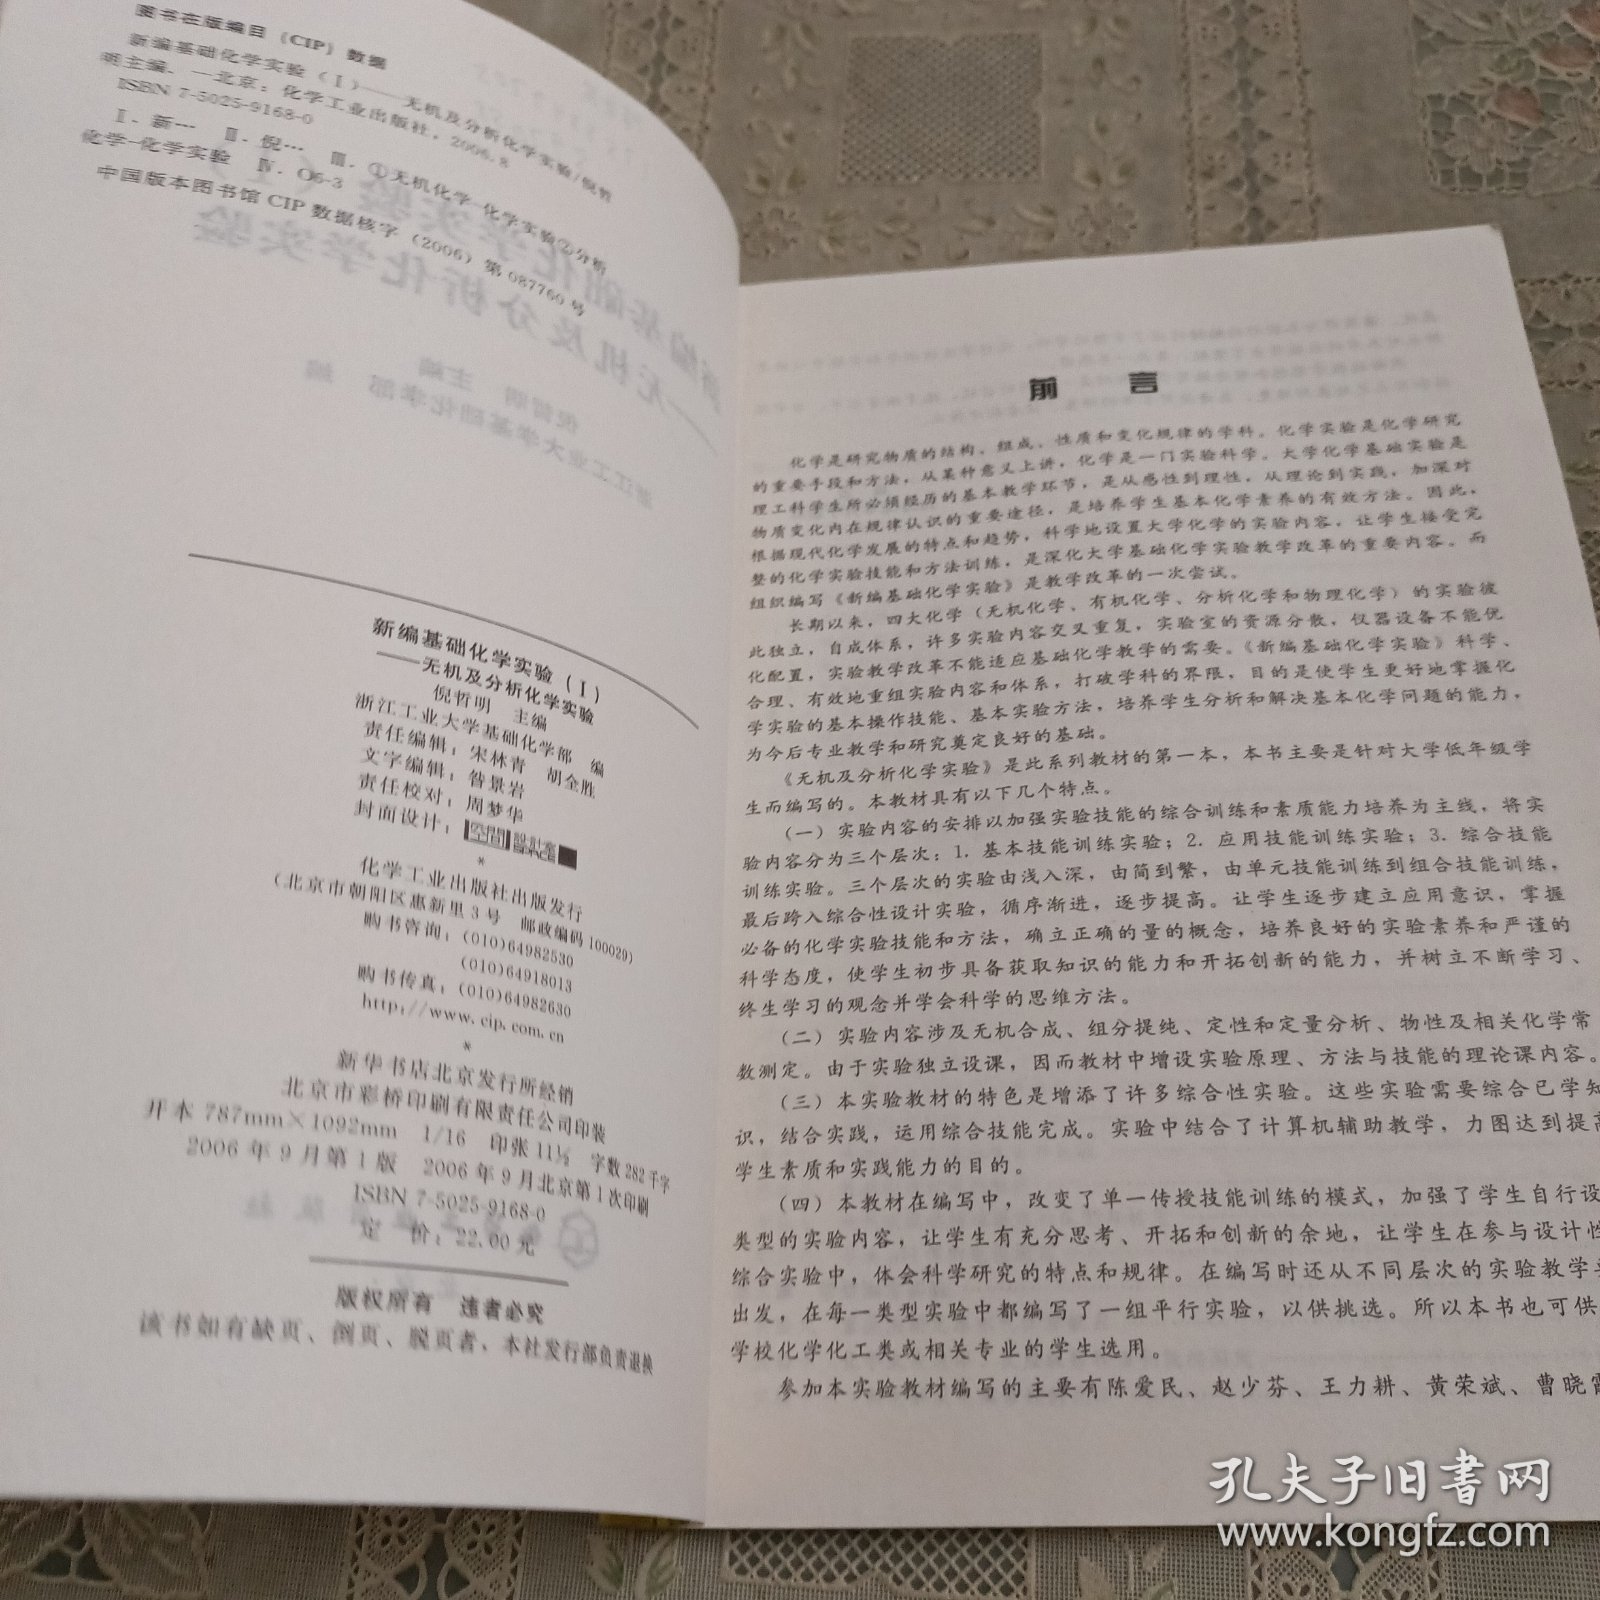 图书在版编目（CIP）数据
新编基础化学实验（Ⅰ）——无机及分析化学实验/倪哲
明主编．—北京：化学工业出版社，2006.8
ISBN 7-5025-9168-0
Ⅰ．新… Ⅱ．倪… Ⅲ．①无机化学-化学实验②分析
化学-化学实验 Ⅳ．O6-3
中国版本图书馆 CIP 数据核字（2006）第 087760 号
新编基础化学实验（Ⅰ）
——无机及分析化学实验
倪哲明 主编
浙江工业大学基础化学部 编
责任编辑：宋林青 胡全胜
文字编辑：昝景岩
责任校对：周梦华
封面设计：空間設計室
*
化学工业出版社出版发行
（北京市朝阳区惠新里 3 号 邮政编码 100029）
购书咨询：(010)64982530
(010)64918013
购书传真：(010)64982630
http://www.cip.com.cn
*
新华书店北京发行所经销
北京市彩桥印刷有限责任公司印装
开本 787mm×1092mm 1/16 印张 11½ 字数 282 千字
2006 年 9 月第 1 版 2006 年 9 月北京第 1 次印刷
ISBN 7-5025-9168-0
定 价：22.00 元
版权所有 违者必究
该书如有缺页、倒页、脱页者，本社发行部负责退换
前 言
化学是研究物质的结构、组成、性质和变化规律的学科。化学实验是化学研究
的重要手段和方法，从某种意义上讲，化学是一门实验科学。大学化学基础实验是
理工科学生所必须经历的基本教学环节，是从感性到理性，从理论到实践，加深对
物质变化内在规律认识的重要途径，是培养学生基本化学素养的有效方法。因此，
根据现代化学发展的特点和趋势，科学地设置大学化学的实验内容，让学生接受完
整的化学实验技能和方法训练，是深化大学基础化学实验教学改革的重要内容。而
组织编写《新编基础化学实验》是教学改革的一次尝试。
长期以来，四大化学（无机化学、有机化学、分析化学和物理化学）的实验彼
此独立，自成体系，许多实验内容交叉重复，实验室的资源分散，仪器设备不能优
化配置，实验教学改革不能适应基础化学教学的需要。《新编基础化学实验》科学、
合理、有效地重组实验内容和体系，打破学科的界限，目的是使学生更好地掌握化
学实验的基本操作技能、基本实验方法，培养学生分析和解决基本化学问题的能力，
为今后专业教学和研究奠定良好的基础。
《无机及分析化学实验》是此系列教材的第一本，本书主要是针对大学低年级学
生而编写的。本教材具有以下几个特点。
（一）实验内容的安排以加强实验技能的综合训练和素质能力培养为主线，将实
验内容分为三个层次：1. 基本技能训练实验；2. 应用技能训练实验；3. 综合技能
训练实验。三个层次的实验由浅入深，由简到繁，由单元技能训练到组合技能训练，
最后跨入综合性设计实验，循序渐进，逐步提高。让学生逐步建立应用意识，掌握
必备的化学实验技能和方法，确立正确的量的概念，培养良好的实验素养和严谨的
科学态度，使学生初步具备获取知识的能力和开拓创新的能力，并树立不断学习、
终生学习的观念并学会科学的思维方法。
（二）实验内容涉及无机合成、组分提纯、定性和定量分析、物性及相关化学常
数测定。由于实验独立设课，因而教材中增设实验原理、方法与技能的理论课内容。
（三）本实验教材的特色是增添了许多综合性实验。这些实验需要综合已学知
识，结合实践，运用综合技能完成。实验中结合了计算机辅助教学，力图达到提高
学生素质和实践能力的目的。
（四）本教材在编写中，改变了单一传授技能训练的模式，加强了学生自行设
类型的实验内容，让学生有充分思考、开拓和创新的余地，让学生在参与设计性
综合实验中，体会科学研究的特点和规律。在编写时还从不同层次的实验教学
出发，在每一类型实验中都编写了一组平行实验，以供挑选。所以本书也可供
学校化学化工类或相关专业的学生选用。
参加本实验教材编写的主要有陈爱民、赵少芬、王力耕、黄荣斌、曹晓霞
孔夫子旧书网
www.kongfz.com